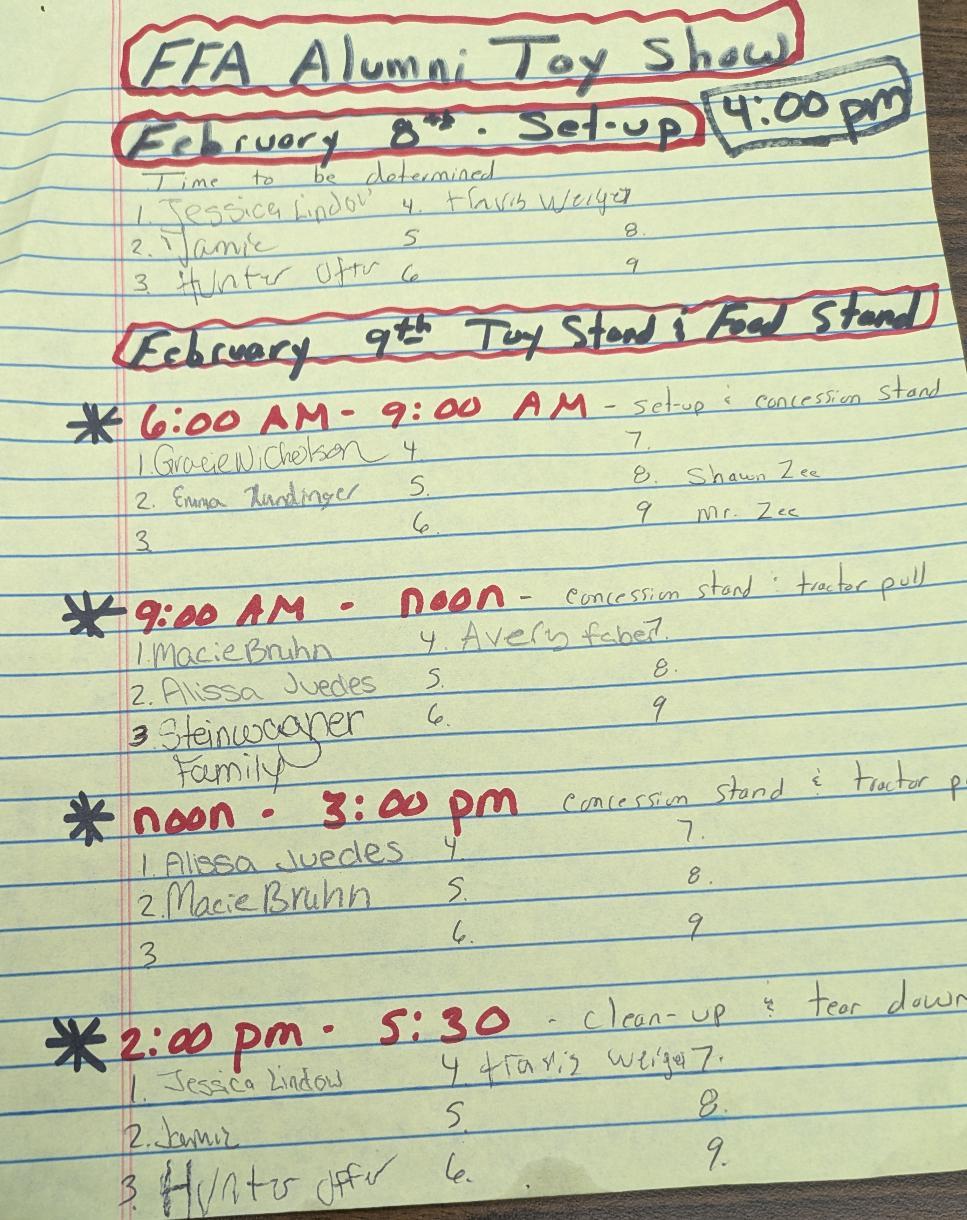 FFA Alumni Toy Show
February 8th - Set-up 4:00 pm
Time to be determined
1. Jessica Lindow 4. travis Weiger
2. Jamie 5 8.
3. Hunter Offer 6 9
February 9th Toy Stand & Food Stand
* 6:00 AM - 9:00 AM - set-up & concession stand
1. Gracie Nicholson 4. 7.
2. Emma 5. 8. Shawn Zee
3. 6. 9 Mr. Zee
* 9:00 AM - noon - concession stand & tractor pull
1. Macie Bruhn 4. Avery faber 7.
2. Alissa Juedes 5. 8.
3 Steinwagner 6. 9
Family
* noon - 3:00 pm concession stand & tractor p
1. Alissa Juedes 4. 7.
2. Macie Bruhn 5. 8.
3 6. 9
* 2:00 pm - 5:30 - clean-up & tear down
1. Jessica Lindow 4 travis weiger 7.
2. Jamie 5. 8.
3. Hunter Offer 6. 9.